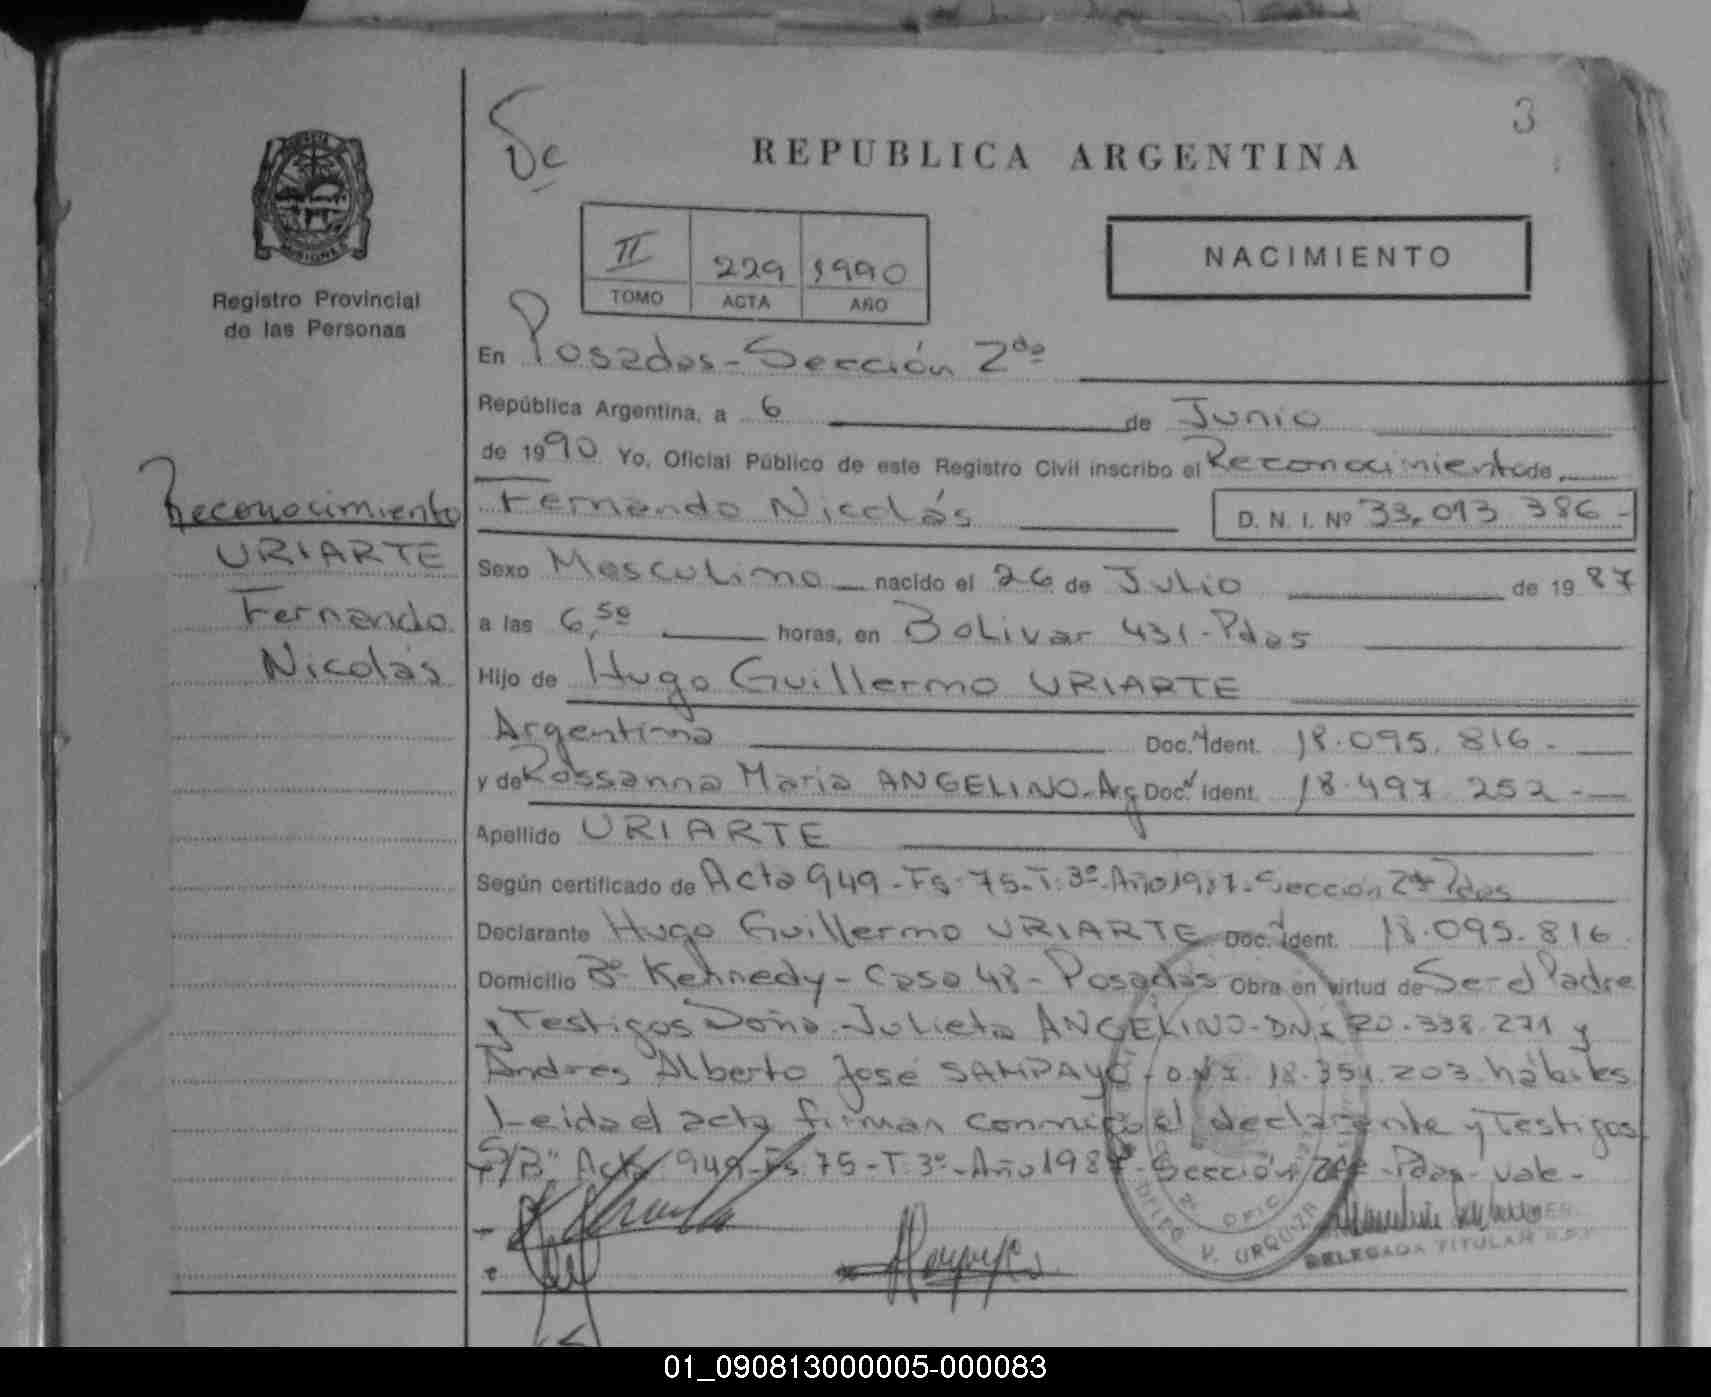 3
REPUBLICA ARGENTINA
Registro Provincial
de las Personas
II 229 1990
TOMO ACTA AÑO
NACIMIENTO
En Posadas - Sección 2da
República Argentina, a 6 de Junio
de 1990 Yo, Oficial Público de este Registro Civil inscribo el Reconocimiento de
Fernando Nicolás D. N. I. Nº 33.013.386-
Reconocimiento
URIARTE
Fernando
Nicolás
Sexo Masculino nacido el 26 de Julio de 1987
a las 6,50 horas, en Bolivar 431 - Pdas
Hijo de Hugo Guillermo URIARTE
Argentina Doc. Ident. 18.095.816-
y de Rossanna Maria ANGELINO - Arg Doc. Ident. 18.497.252-
Apellido URIARTE
Según certificado de Acta 949 - Fs. 75 - T. 3º - Año 1987 - Sección 2da Pdas
Declarante Hugo Guillermo URIARTE Doc. Ident. 18.095.816
Domicilio Bº Kennedy - Casa 48 - Posadas Obra en virtud de Ser el Padre
y Testigos Doña Julieta ANGELINO - DNI 20.338.271 y
Andres Alberto José SAMPAYO - DNI. 18.351.203 hábiles
Leida el acta firman conmigo el declarante y Testigos
S/B" Acta 949 - Fs. 75 - T. 3º - Año 1987 - Sección 2da - Pdas - vale -
OFIC.
DELEG V. URQUIZA
DELEGADA TITULAR
01_090813000005-000083